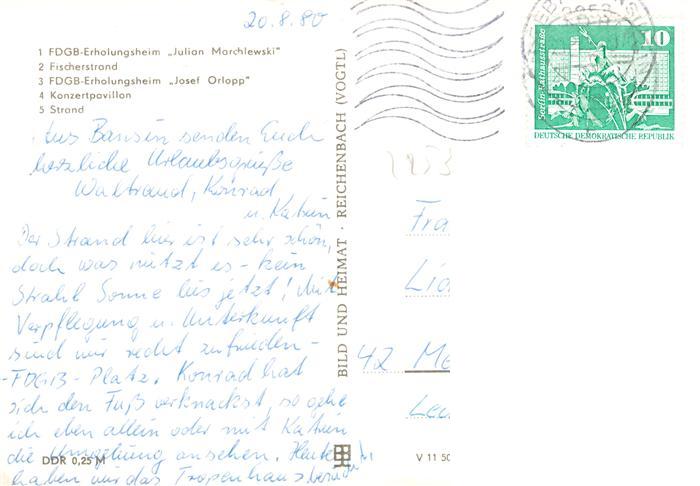 20.8.80
1 FDGB-Erholungsheim „Julian Marchlewski"
2 Fischerstrand
3 FDGB-Erholungsheim „Josef Orlopp"
4 Konzertpavillon
5 Strand
Aus Bansin senden Euch
herzliche Urlaubsgrüße
Waltraud, Konrad
u. Katrin
Der Strand hier ist sehr schön,
doch was nützt es - kein
Strahl Sonne bis jetzt! Mit
Verpflegung u. Unterkunft
sind wir recht zufrieden -
-FDGB-Platz. Konrad hat
sich den Fuß verknackst, so gehe
ich eben allein oder mit Katrin
die Umgebung ansehen. Heute
haben wir das Tropenhaus besucht
DDR 0,25 M
BILD UND HEIMAT · REICHENBACH (VOGTL)
V 11 50
Berlin-Rathausstraße
10
DEUTSCHE DEMOKRATISCHE REPUBLIK
Fra
42 Me